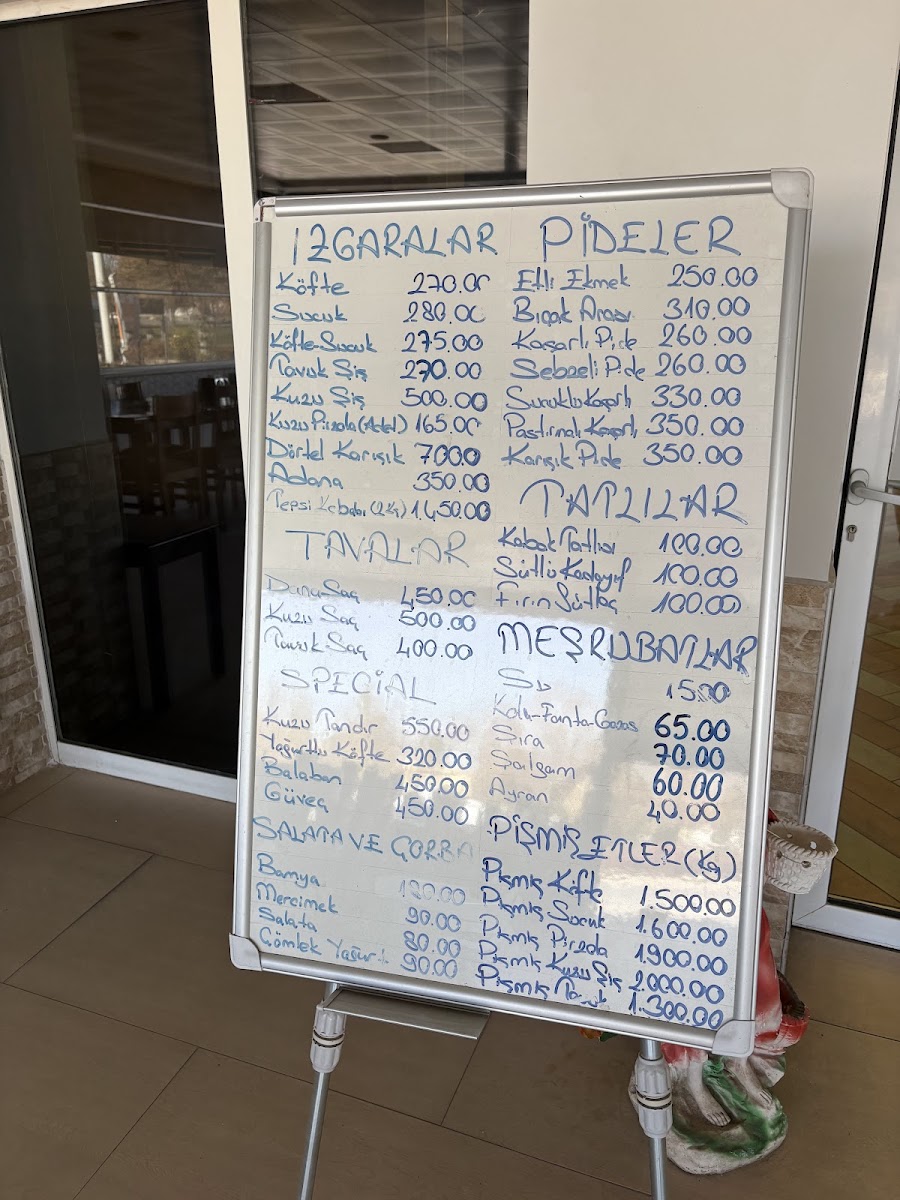 IZGARALAR
Köfte 270.00
Sucuk 280.00
Köfte-Sucuk 275.00
Tavuk Şiş 270.00
Kuzu Şiş 500.00
Kuzu Pirzola (Adet) 165.00
Dörtel Karışık 700.0
Adana 350.00
Tepsi Kebabı (2Kg) 1.450.00
TAVALAR
Dana Saç 450.00
Kuzu Saç 500.00
Tavuk Saç 400.00
SPECİAL
Kuzu Tandır 550.00
Yağurtlu Köfte 320.00
Balaban 450.00
Güveç 450.00
SALATA VE ÇORBA
Bamya
Mercimek 90.00
Salata 80.00
Çömlek 90.00
PİDELER
Etli Ekmek 250.00
Bıçak Arası 310.00
Kaşarlı Pide 260.00
Sebzeli Pide 260.00
Sucuklu Kaşarlı 330.00
Pastırmalı Kaşarlı 350.00
Karışık Pide 350.00
TATLILAR
Kabak Tatlısı 100.00
Sütlü Kadayıf 100.00
Fırın Sütlaç 100.00
MEŞRUBATLAR
Su 15.00
Kola-Fanta-Gazoz 65.00
Şıra 70.00
Şalgam 60.00
Ayran 40.00
PİŞMİŞ ETLER (Kg)
Pişmiş Köfte 1.500.00
Pişmiş Sucuk 1.600.00
Pişmiş Pirzola 1.900.00
Pişmiş Kuzu Şiş 2.000.00
Pişmiş Tavuk 1.300.00